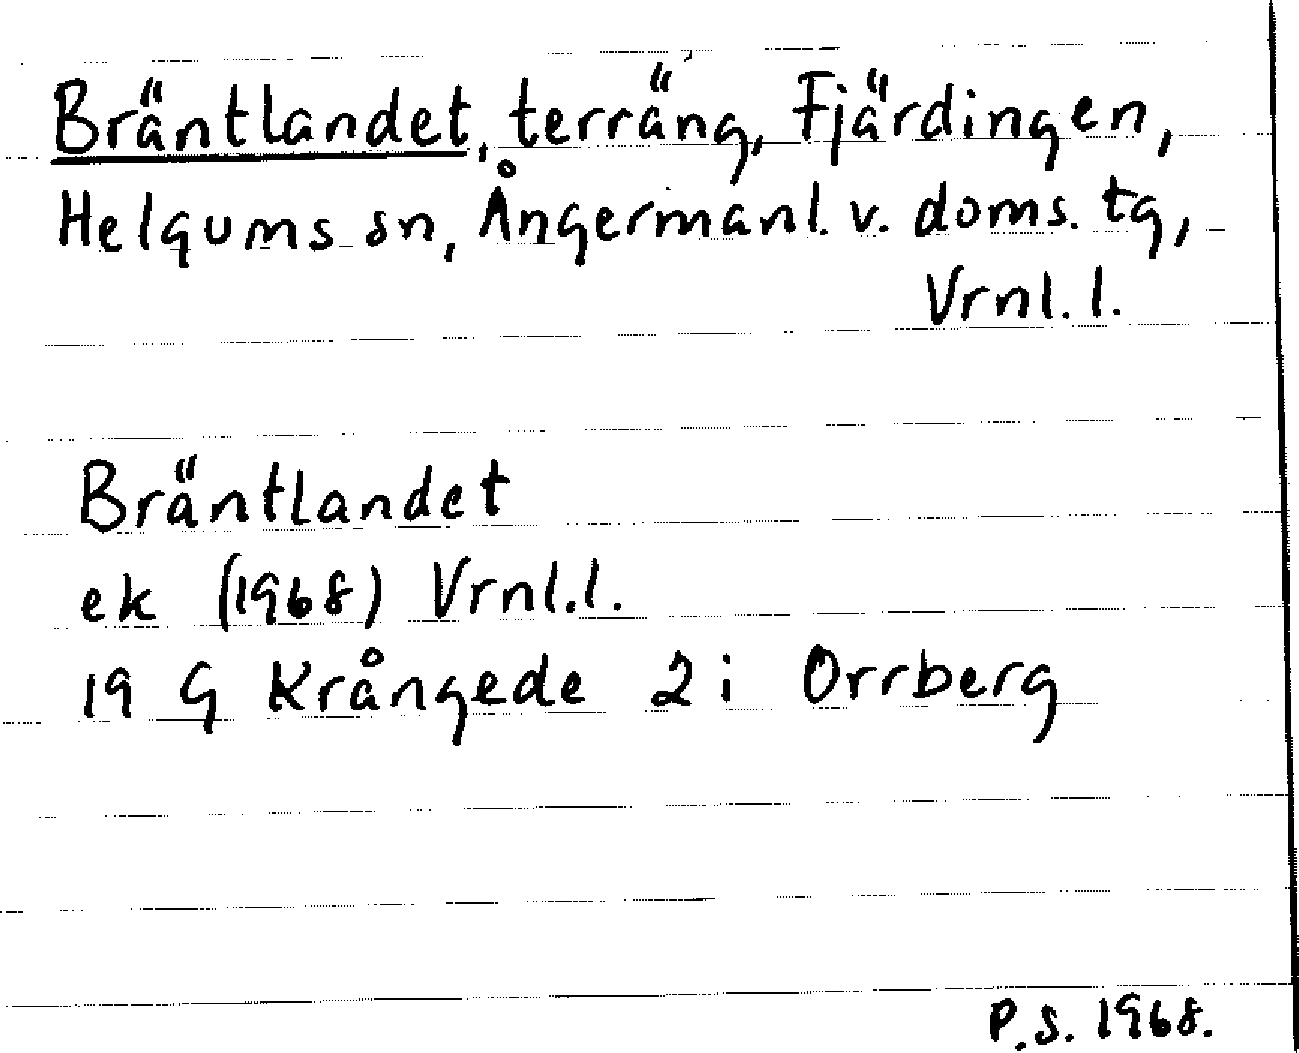 Bräntlandet, terräng, Fjärdingen,
Helgums sn, Ångermanl. v. doms. tg,
Vrnl. l.
Bräntlandet
ek (1968) Vrnl. l.
19 G Krångede 2 i Orrberg
P.S. 1968.